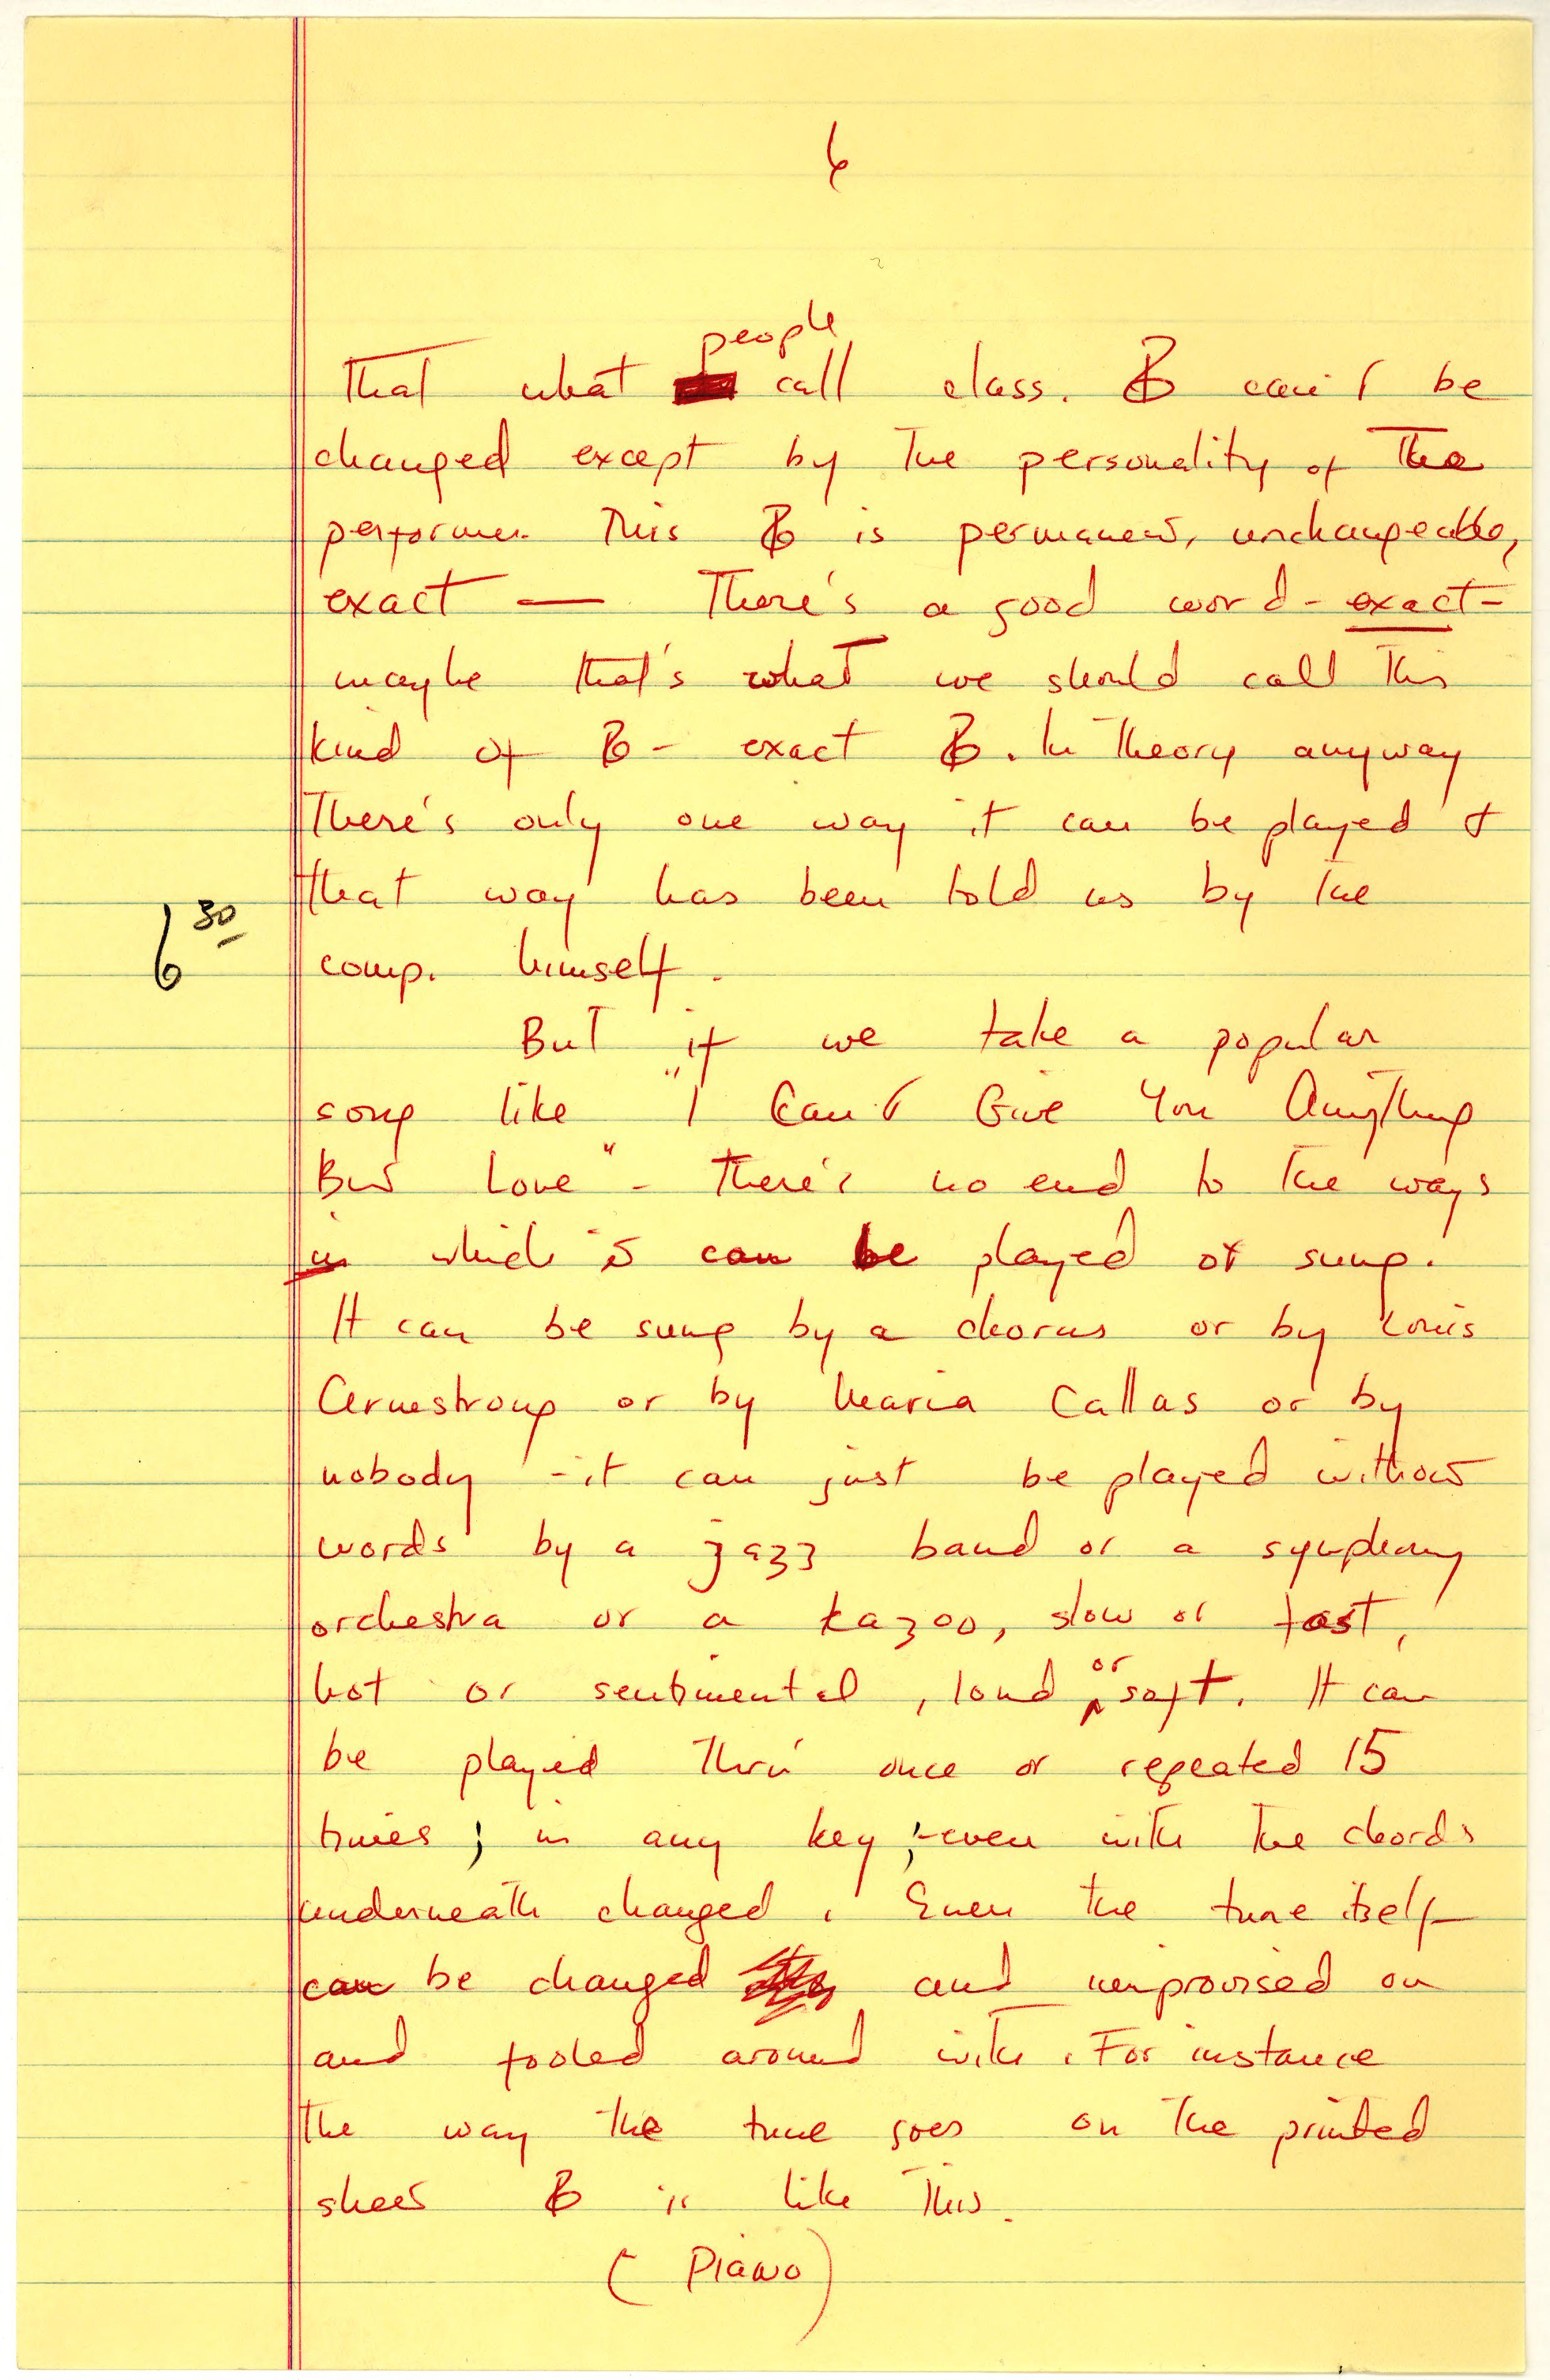 6
people
That what call class. B can't be
changed except by the personality of the
performer. This B is permanent, unchangeable,
exact — There's a good word - exact -
maybe that's what we should call this
kind of B - exact B. In theory anyway
there's only one way it can be played &
that way has been told us by the
6 30
comp. himself.
But if we take a popular
song like "I Can't Give You Anything
But Love" - there's no end to the ways
in which it can be played or sung.
It can be sung by a chorus or by Louis
Armstrong or by Maria Callas or by
nobody - it can just be played without
words by a jazz band or a symphony
orchestra or a kazoo, slow or fast,
hot or sentimental, loud or soft. It can
be played thru once or repeated 15
times; in any key; - even with the chords
underneath changed. Even the tune itself
can be changed and improvised on
and fooled around with. For instance
the way the tune goes on the printed
sheet B is like this.
(Piano)